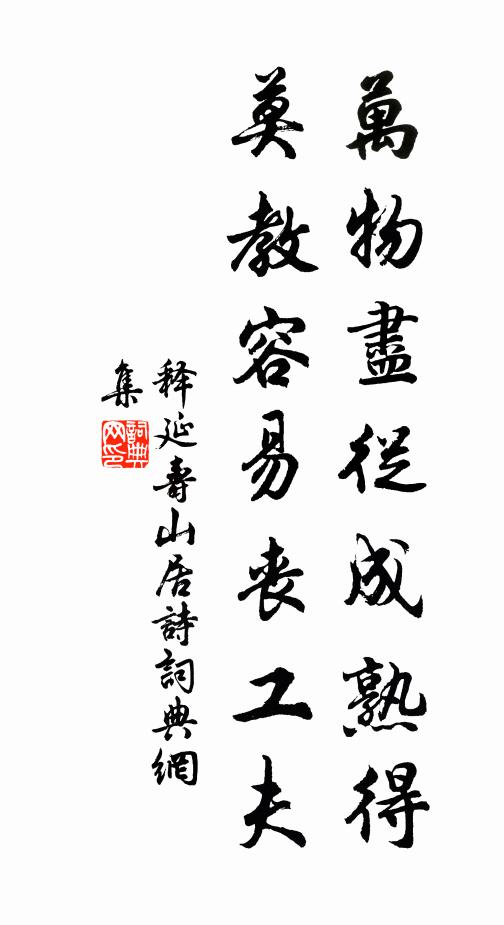 萬物盡從成熟得
莫教容易喪工夫
释延壽山居詩詞典網
集
詞典
网印